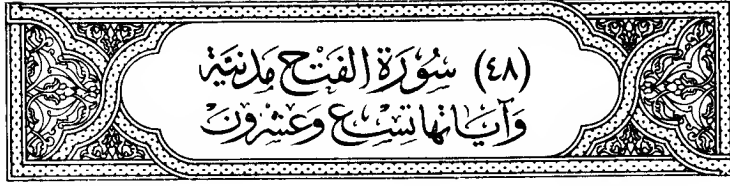 (٤٨) سُورَة الفَتْح مَدنيَّة
وَآيَاتها تسْع وَعشْرُونَ